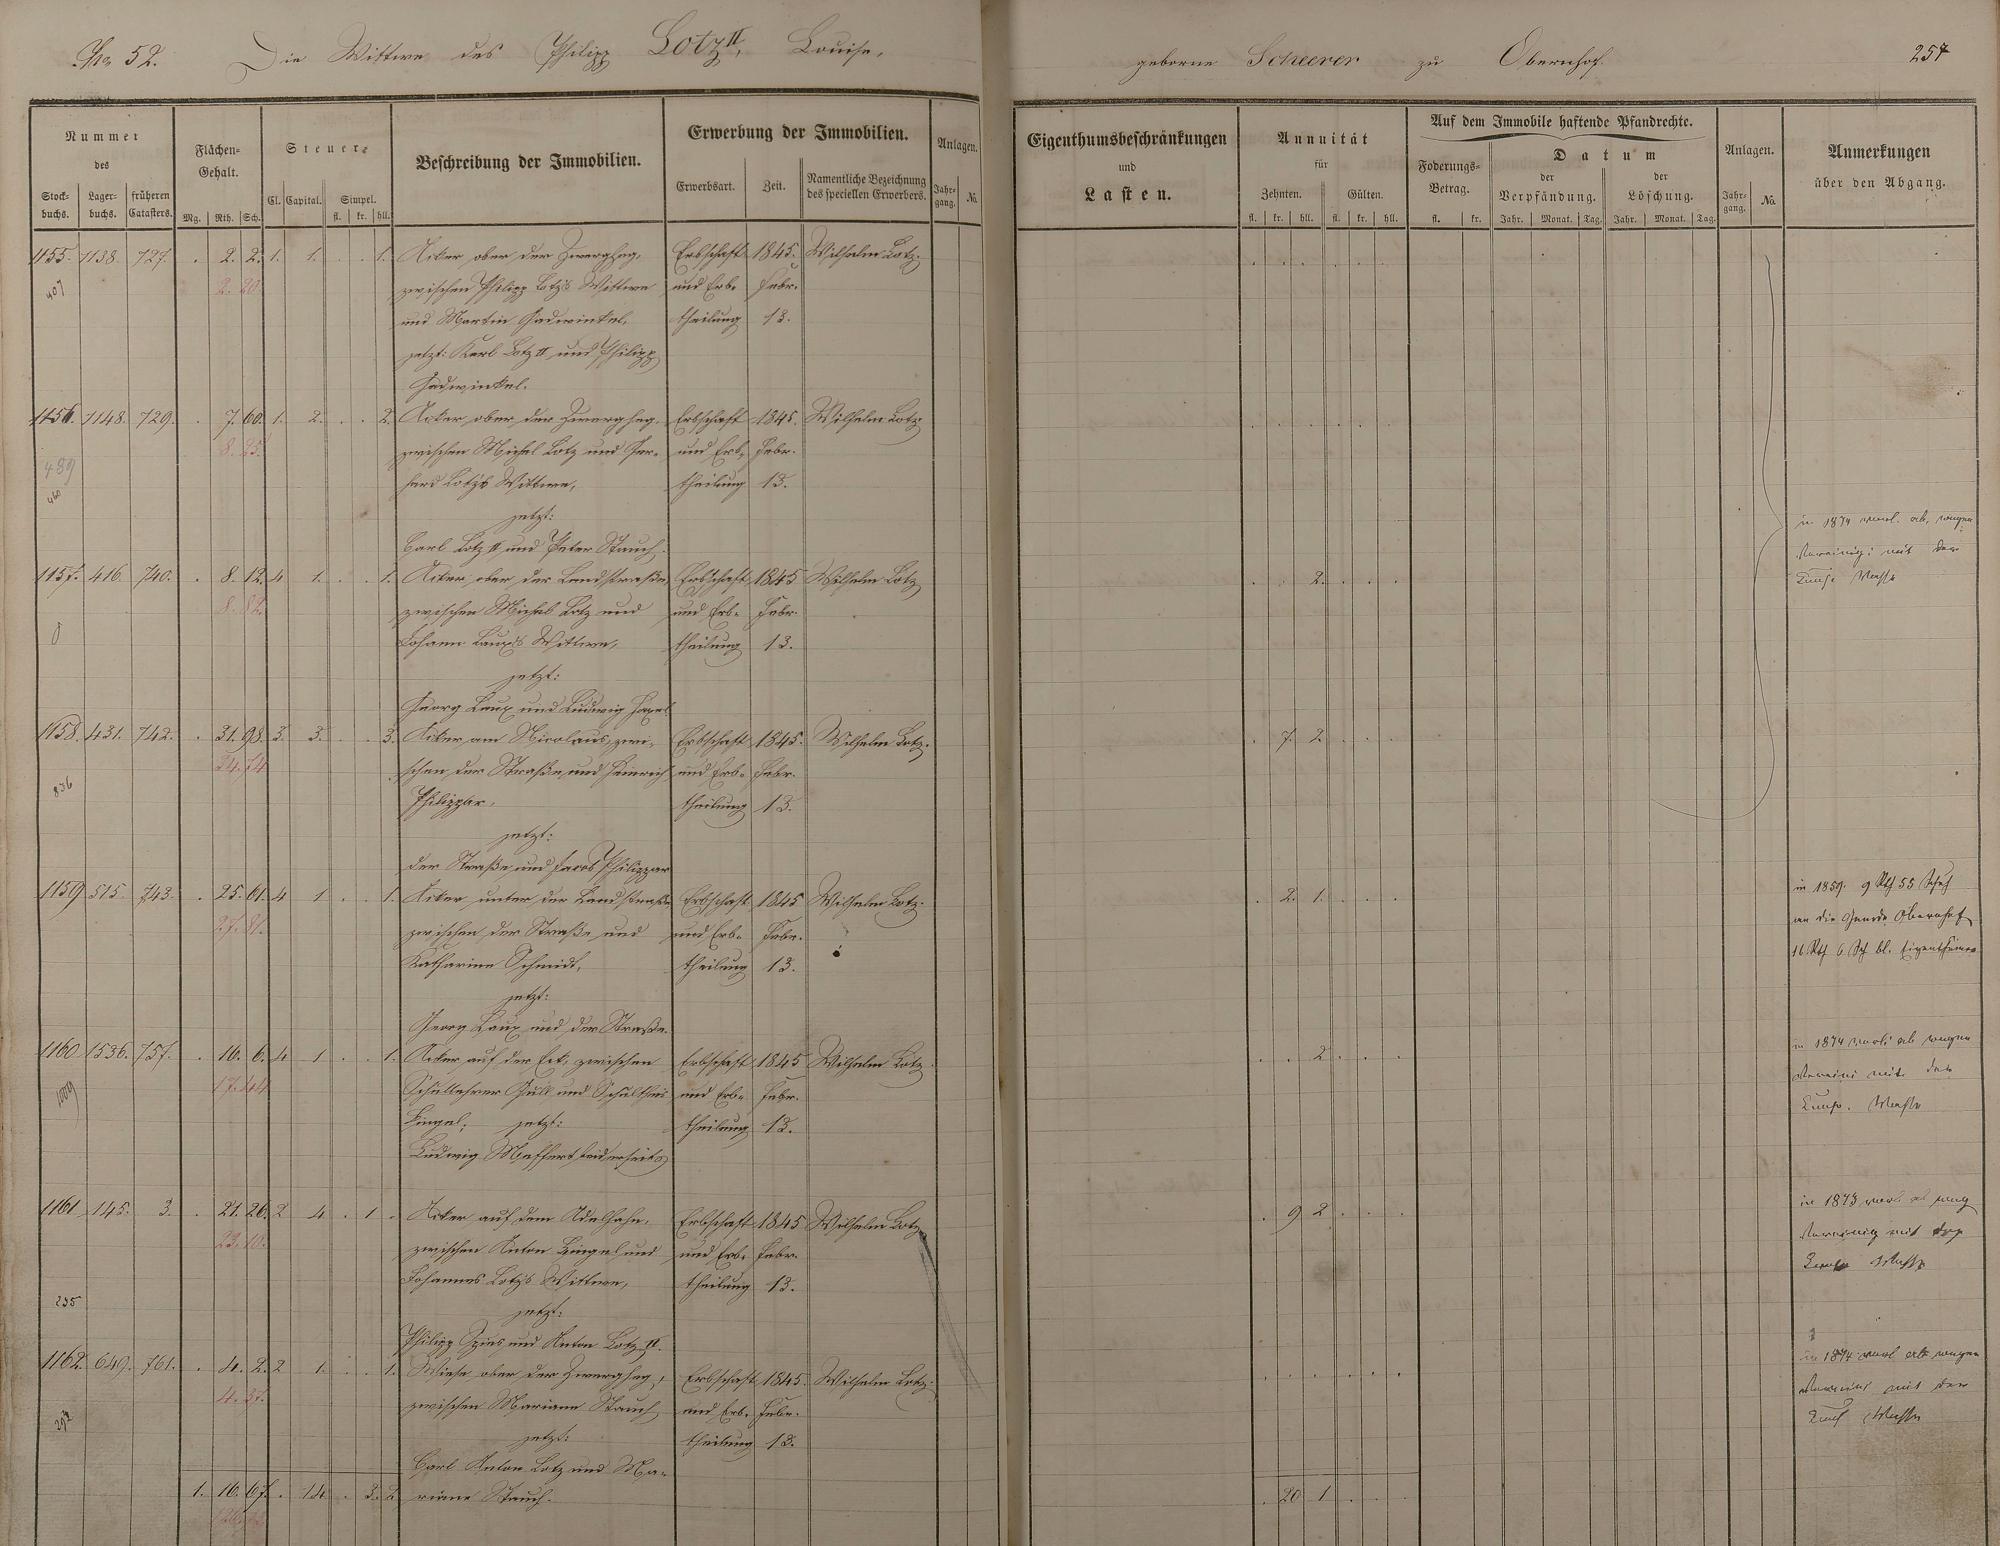 No 52. Die Wittwe des Philipp Lotz II, Louise, geborne Scheerer zu Obernhof. 257
Nummer
des
Stock-buchs. Lager-buchs. früheren Catasters.
Flächen-Gehalt.
Mg. Rth. Sch.
Steuer-
Cl. Capital. Simpel.
fl. kr. hll.
Beschreibung der Immobilien.
Erwerbung der Immobilien.
Erwerbsart. Zeit. Namentliche Bezeichnung des speciellen Erwerbers.
Anlagen.
Jahr-gang. No.
Eigenthumsbeschränkungen
und
Lasten.
Annuität
für
Zehnten. Gülten.
fl. kr. hll. fl. kr. hll.
Auf dem Immobile haftende Pfandrechte.
Foderungs-Betrag.
fl. kr.
Datum
der Verpfändung. der Löschung.
Jahr. Monat. Tag. Jahr. Monat. Tag.
Anlagen.
Jahr-gang. No.
Anmerkungen
über den Abgang.
1155. 1138. 727. . 2. 2. 1. 1. . . 1. Acker ober der Zwerghag, Erbschaft 1845. Wilhelm Lotz.
407 2. 20. zwischen Philipp Lotz's Wittwe und Erb- Febr.
und Martin Hadwinkel, theilung 13.
jetzt: Karl Lotz II und Philipp
Hadwinkel.
1156. 1148. 729. . 7. 60. 1. 2. . . 2. Acker ober der Zwerghag, Erbschaft 1845. Wilhelm Lotz
8. 25. zwischen Michel Lotz und Ger- und Erb- Febr.
489 hard Lotz's Wittwe, theilung 13.
460
jetzt:
Carl Lotz II und Peter Stauch.
in 1874 wegen
mit der
Masse
1157. 416. 740. . 8. 12. 4 1. . . 1. Acker ober der Landstraße, Erbschaft 1845 Wilhelm Lotz . . 2.
8. 82. zwischen Michel Lotz und und Erb- Febr.
Johann Laux's Wittwe, theilung 13.
jetzt:
Georg Laux und Ludwig
1158. 431. 742. . 31. 98. 3. 3. . . 3. Acker am Nicolaus, zwi- Erbschaft 1845. Wilhelm Lotz. . 7. 2.
34. 74 schen der Straße und Heinrich und Erb- Febr.
836 Philippar, theilung 13.
jetzt:
der Straße und Jacob Philippar
1159 515. 743. . 25. 61. 4 1 . . 1. Acker unter der Landstraße Erbschaft 1845 Wilhelm Lotz. . 2. 1.
27. 81. zwischen der Straße und und Erb- Febr.
Katharine Schmidt, theilung 13.
jetzt:
Georg Laux und der Straße.
in 1859. 9 Rth 55 Sch
an die Obernhof
16 Rth 6 Sch bl. Eigenthümer
1160 1536. 757. . 16. 6. 4 1 . . 1. Acker auf der Eck, zwischen Erbschaft 1845 Wilhelm Lotz . . 2.
1009 17. 44 Schullehrer Gull und Schultheis und Erb- Febr.
Lingel, jetzt: theilung 13.
Ludwig Meffert beiderseits
in 1874 wegen
mit der
Masse
1161 145. 3. . 21. 26. 2 4 . 1 . Acker auf dem Adelhahn, Erbschaft 1845 Wilhelm Lotz . 9 2
23. 10. zwischen Anton Lingel und und Erb- Febr.
Johannes Lotz's Wittwe, theilung 13.
235 jetzt:
Philipp Spies und Anton Lotz II.
in 1873
mit der
Masse
1162. 649. 761. . 4. 2. 2 1. . . 1. Wiese ober der Zwerghag, Erbschaft 1845. Wilhelm Lotz.
4. 37. zwischen Mariane Stauch und Erb- Febr.
jetzt: theilung 13.
Carl Anton Lotz und Ma-
riane Stauch.
in 1874 wegen
mit der
Masse
1. 16. 67. . 14 . 3. 2 . 20 1